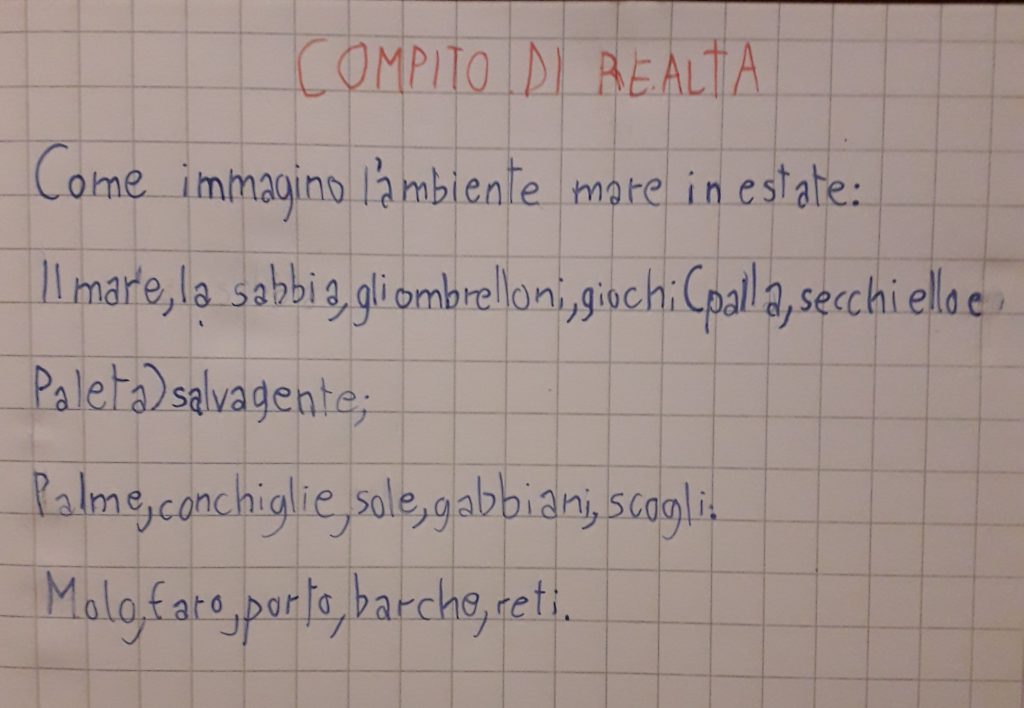 COMPITO DI REALTA
Come immagino l'ambiente mare in estate:
Il mare, la sabbia, gli ombrelloni, giochi (palla, secchiello e
Paleta) salvagente;
Palme, conchiglie, sole, gabbiani, scogli.
Molo, faro, porto, barche, reti.